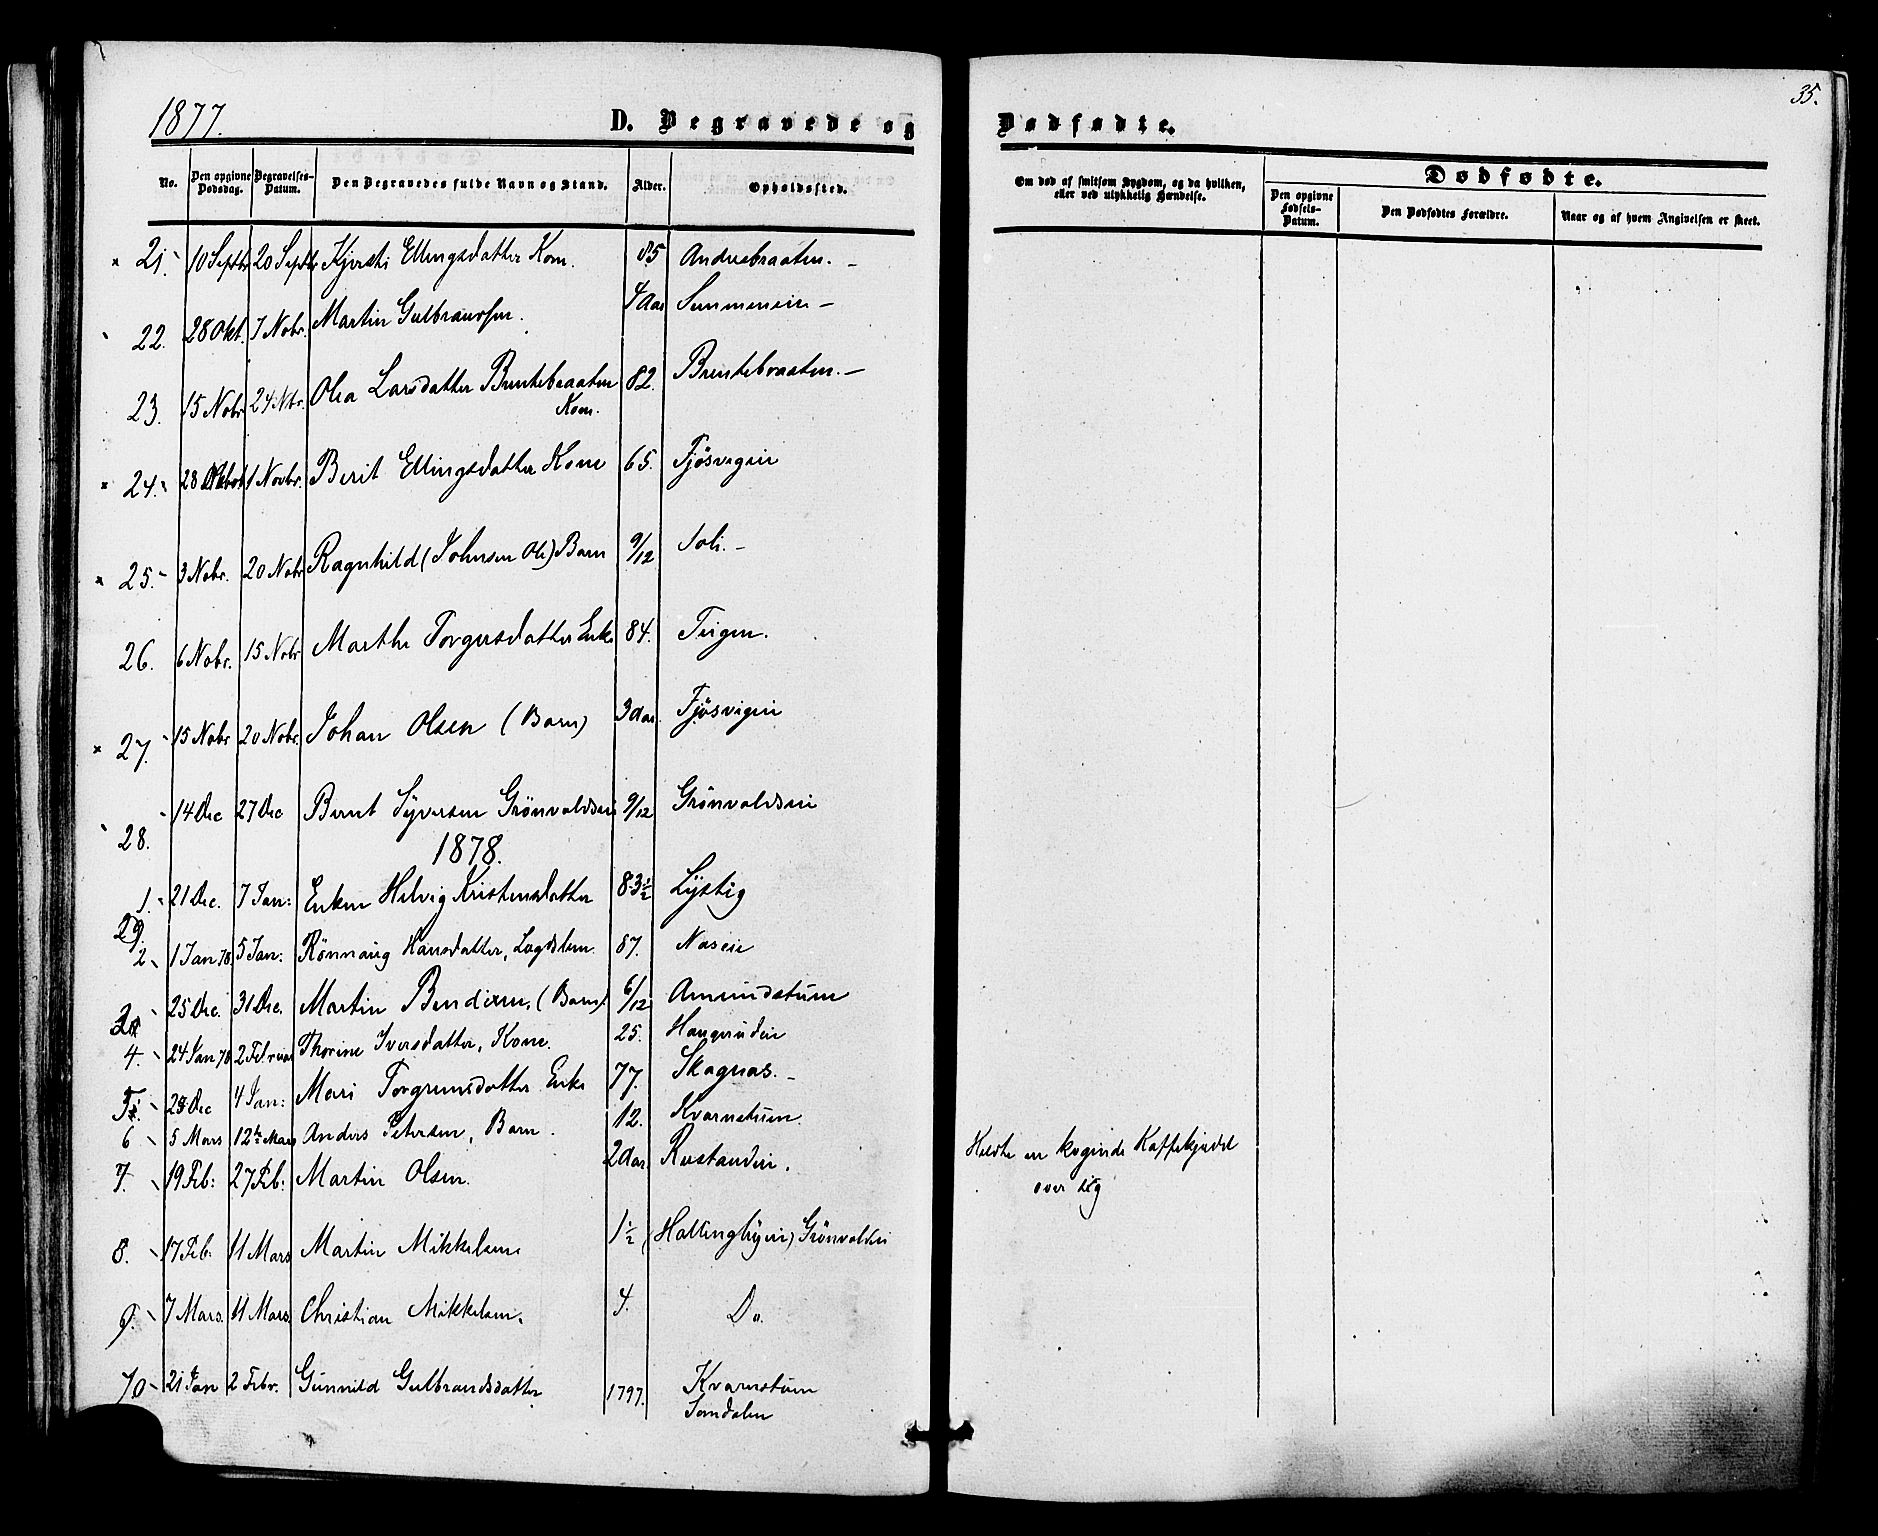 1877.
D. Begravede og
Dødfødte.
35.
No.
Den opgivne Dødsdag.
Begravelses-Datum.
Den Begravedes fulde Navn og Stand.
Alder.
Opholdssted.
Om død af smitsom Sygdom, og da hvilken, eller ved ulykkelig Hændelse.
Dødfødte.
Den opgivne Fødsels-Datum.
Den Dødfødtes Forældre.
Naar og af hvem Angivelsen er skeet.
21. 10 Septbr 20 Septbr Kjersti Ellingsdatter Kone. 85
22. 28 Okt. 7 Nobr. Martin Gulbrandsen. 4 Aar
23. 15 Nobr 24 Nbr. Olea Larsdatter Brentebraaten 82. Brentebraaten.
Kone.
24. 28 Oktobr 1 Novbr. Berit Ellingsdatter Kone 65. Fjösvigeie
25. 3 Nobr. 20 Nobr Ragnhild (Johnsen Ole) Barn 9/12 Soli.
26. 6 Nobr. 15 Nobr Marthe Torgersdatter Enke 84. Teigen.
27. 15 Nobr 20 Nobr. Johan Olsen (Barn) 3 Aar. Fjösvigeie
28. 14 Dec 27 Dec Bernt Syversen Grönvoldseie 9/12 Grönvoldseie
1878.
1. 21 Dec. 7 Jan: Enken Helvig Kristensdatter 83½ Lystig
29.
2 1 Jan 78. 5 Jan: Rönnaug Hansdatter, Lægdslem. 87. Næseie
25 Dec. 31 Dec. Martin Bendixen, (Barn) 6/12 Amundstuen
4. 24 Jan 78 2 Februar Thorine Iversdatter, Kone. 25. Haugerudeie
28 Dec 4 Jan: Mari Torgrimsdatter Enke 77. Skagnæs.
6 5 Mars 12te Mars Anders Petersen, Barn. 12. Kvarnstuen.
7. 19 Feb: 27 Feb: Martin Olsen. 2 Aar. Rustandeie. Heldte en kogende Kaffekjedel
over sig
8. 17 Feb. 11 Mars Martin Mikkelsen 1½ (Hallingbyeie) Grönvoldeie
9. 7 Mars. 11 Mars. Christian Mikkelsen. 4. Do.
10 21 Jan 2 Febr. Gunnild Gulbrandsdatter 1797. Kvarnstuen
Somdalen